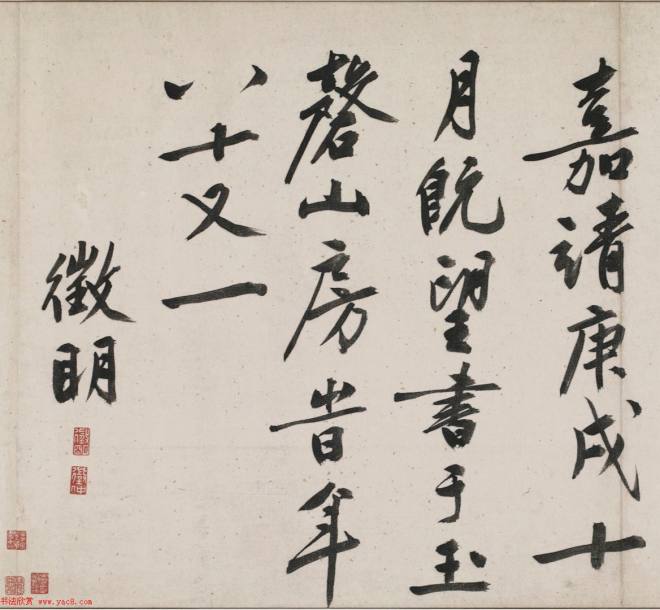 嘉靖庚戌十
月既望書于玉
磬山房時年
八十又一
徵明
书法欣赏 www.yac8.com